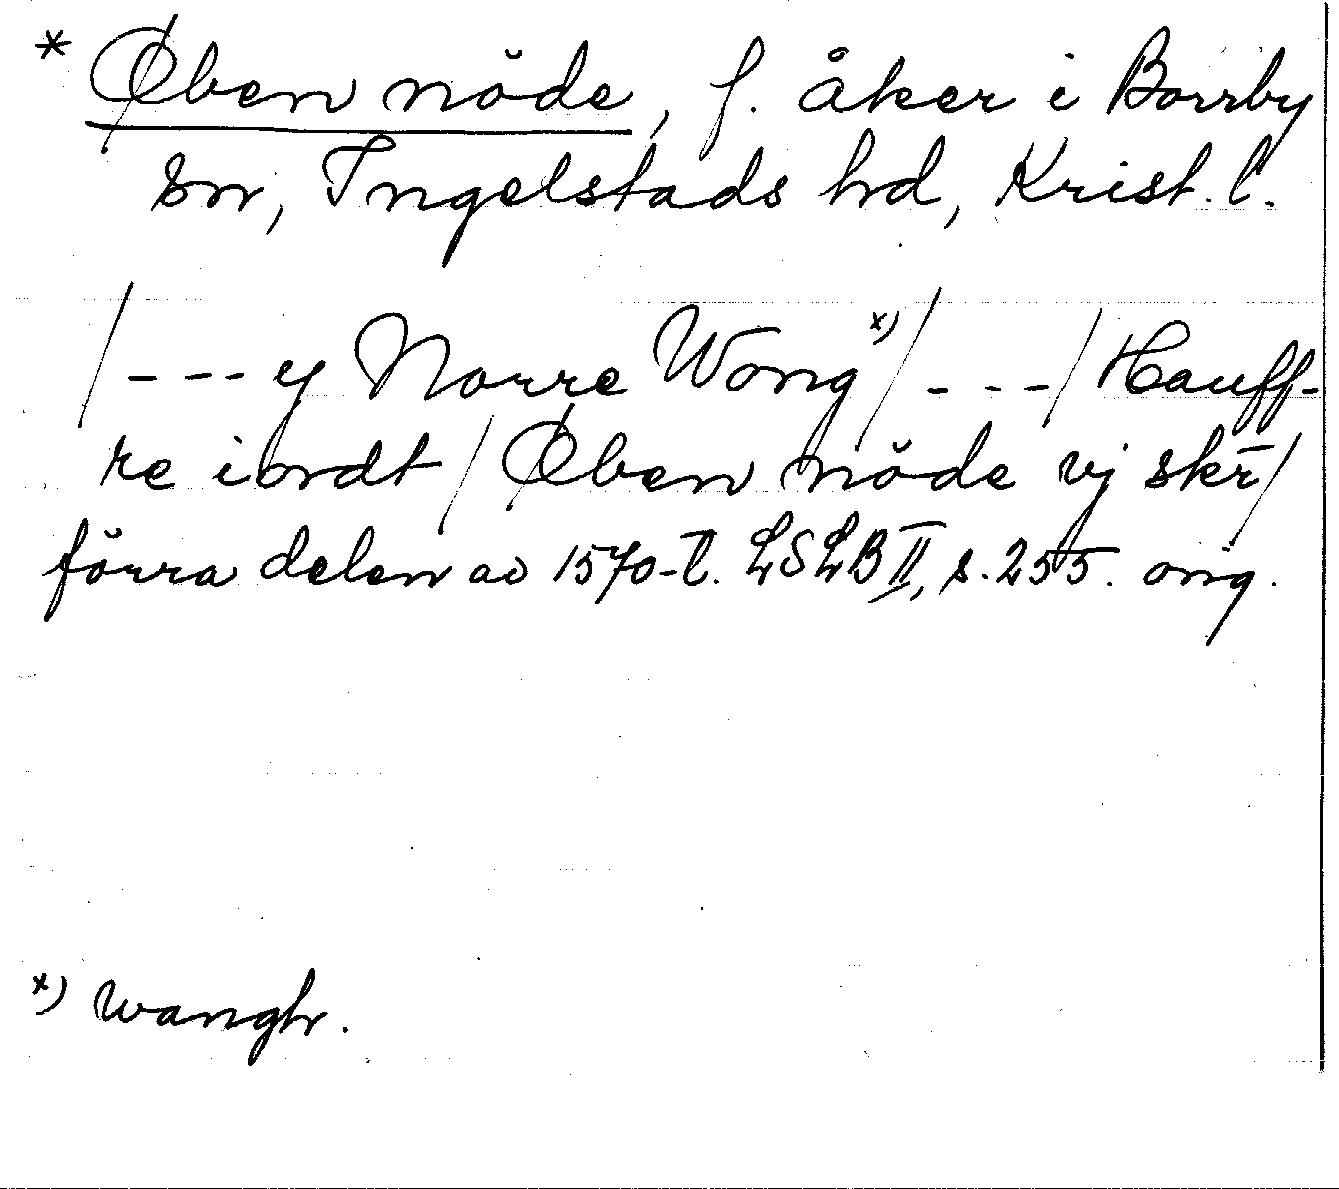 * Øben nöde, f. åker i Borrby
sn, Ingelstads hd, Krist. l.
/---y Norre Wong x)/---/Hauff-
re iordt/Øben nöde vj skr̄/
förra delen av 1570-t. LSLB II, s. 255. orig.
x) wangh.